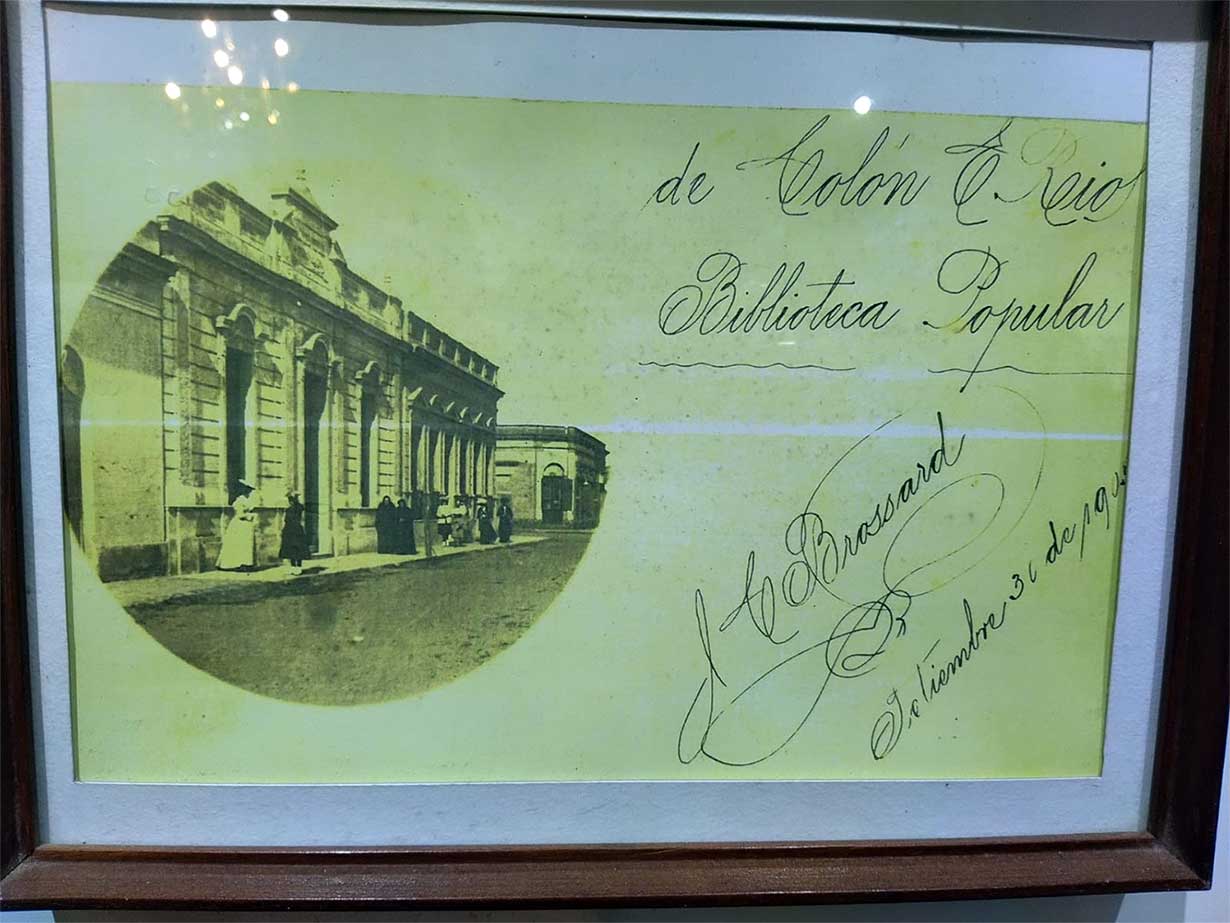 de Colón E. Rios
Biblioteca Popular
C Brossard
Setiembre 30 de 190